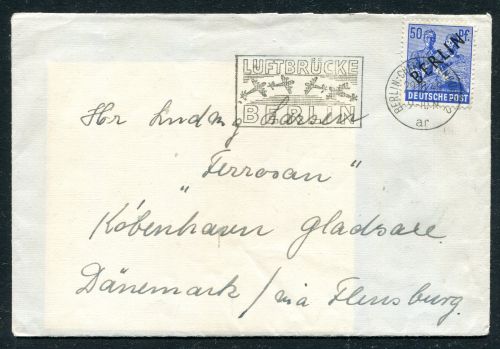 LUFTBRÜCKE
BERLIN
50 PF
BERLIN
DEUTSCHE POST
BERLIN-CH
ar
Hr Ludwig Larsen
"Ferrosan"
København Gladsaxe
Dänemark / via Flensburg.